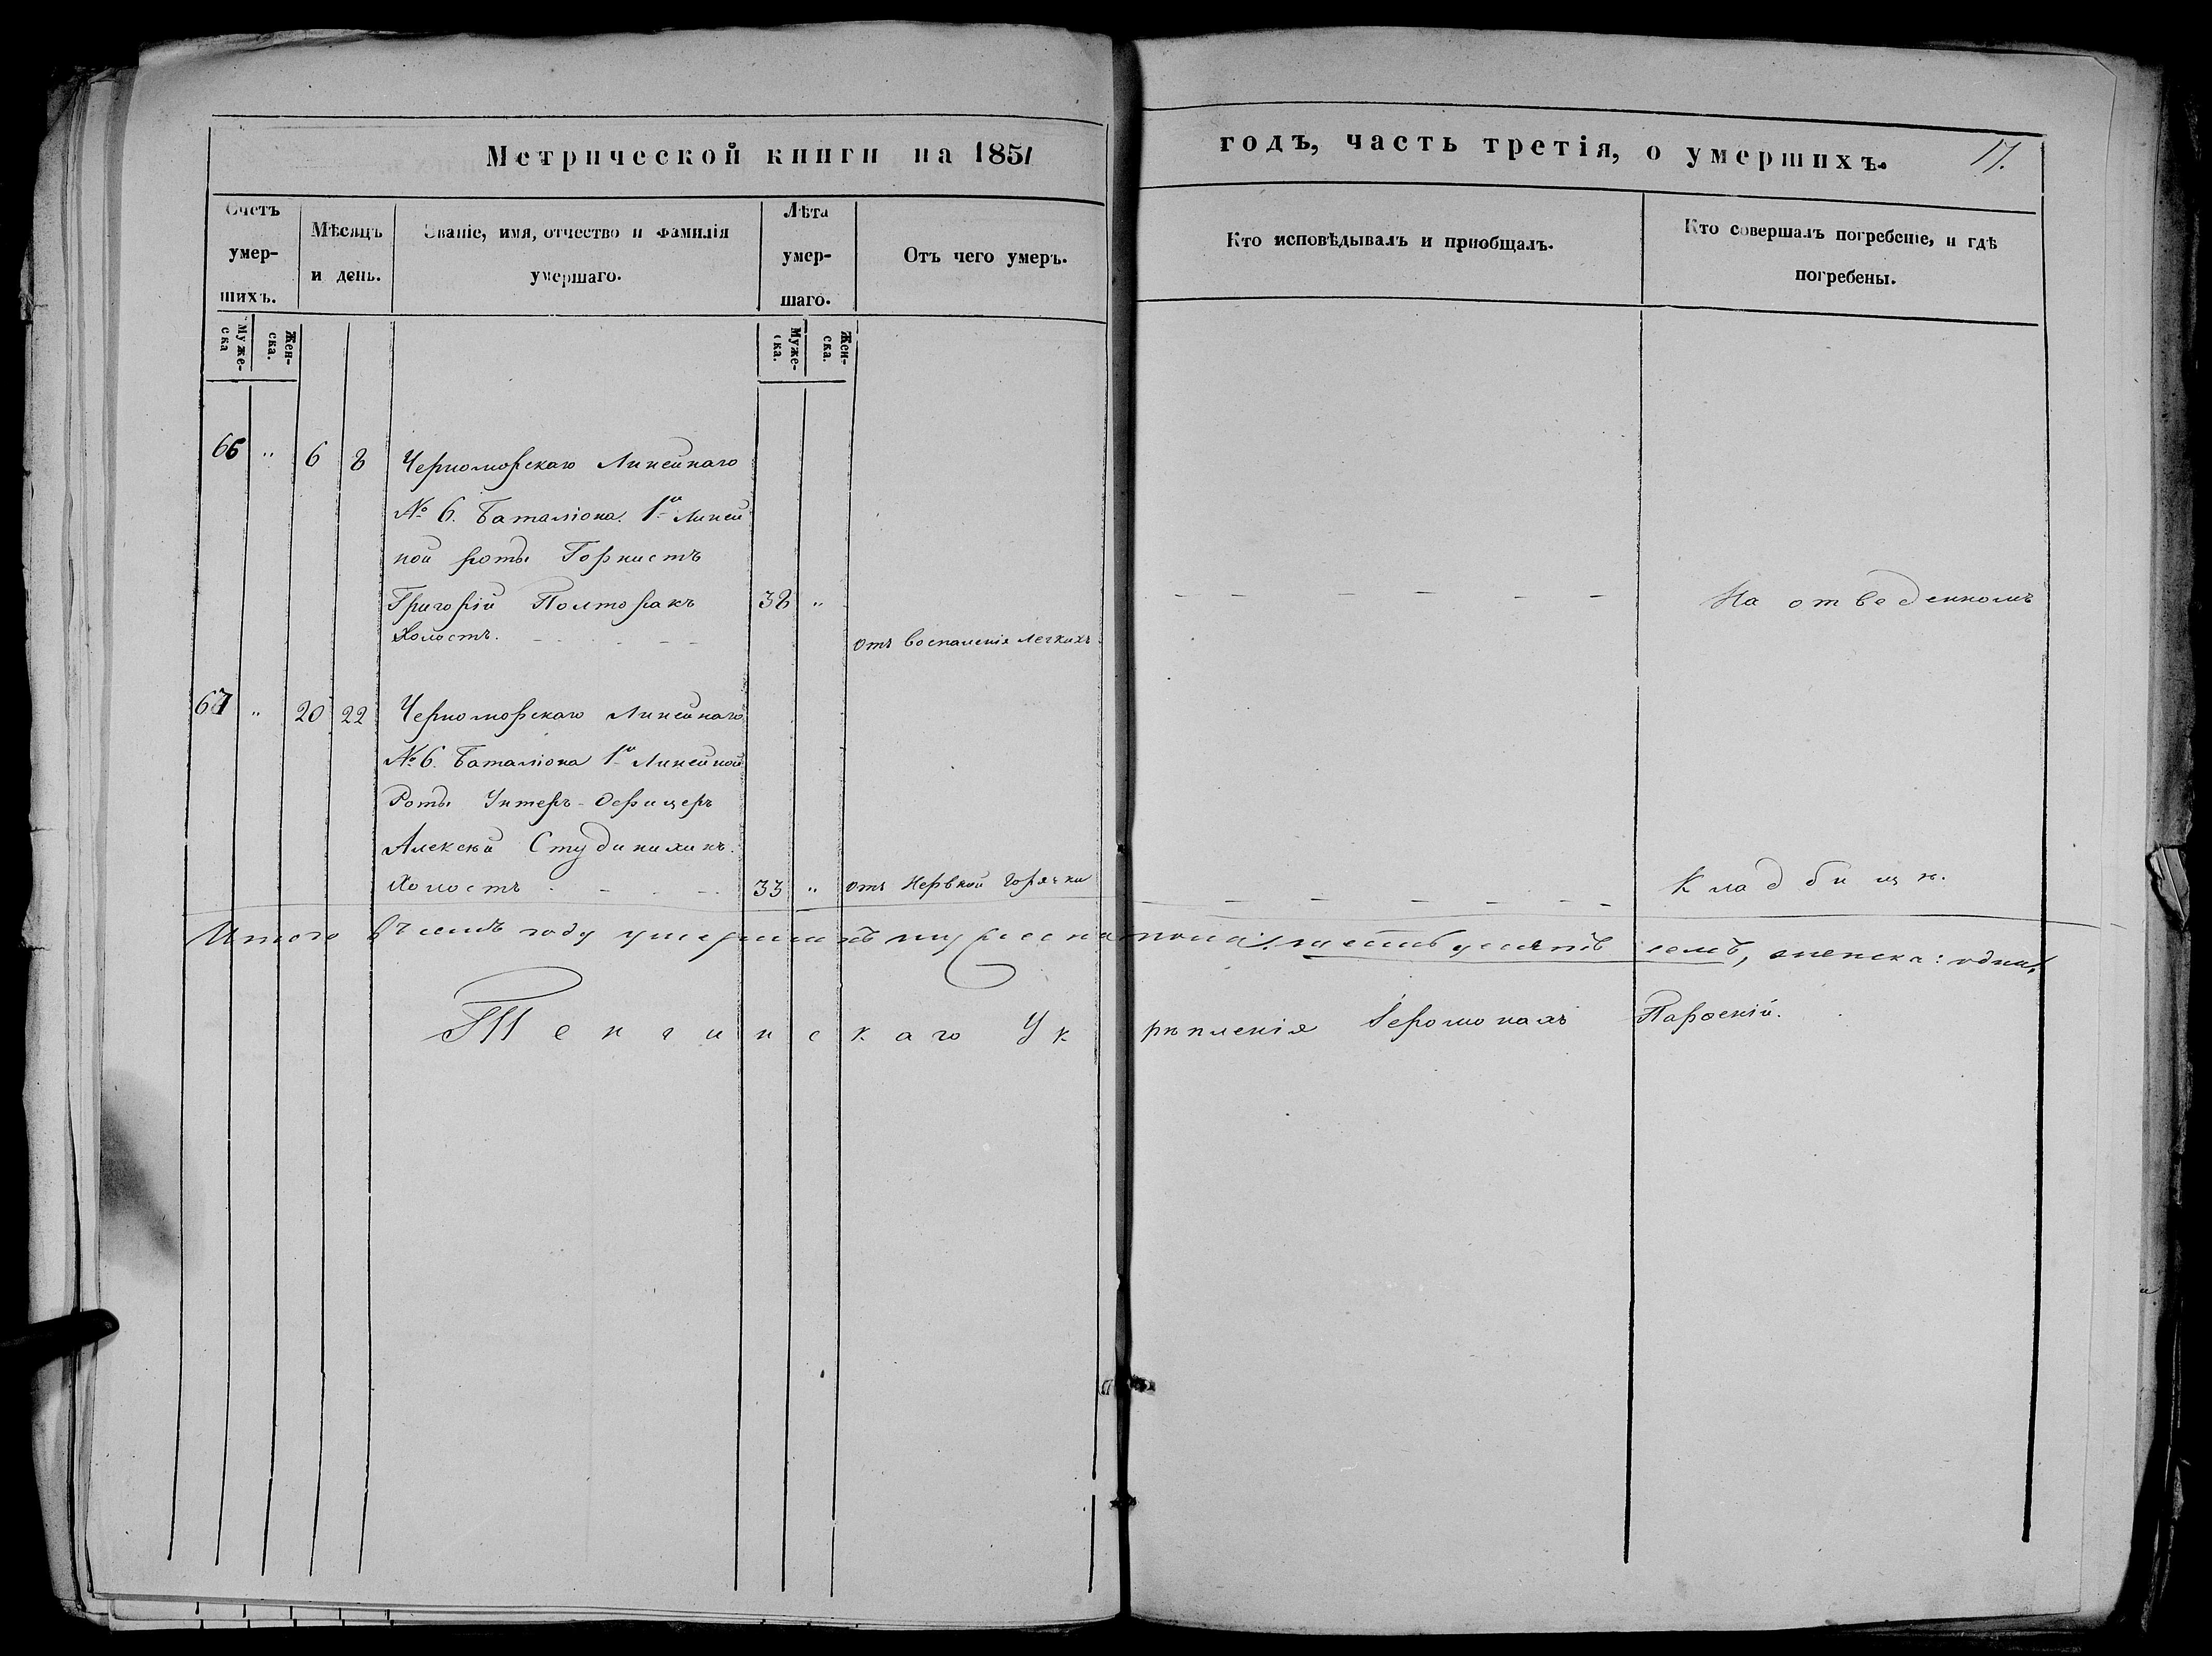 Метрической книги на 1851
годъ, часть третія, о умершихъ.
17.
Счетъ умер-шихъ.
Мѣсяцъ и день.
Званіе, имя, отчество и фамилія умершаго.
Лѣта умер-шаго.
Отъ чего умеръ.
Кто исповѣдывалъ и пріобщалъ.
Кто совершалъ погребеніе, и гдѣ погребены.
Муже-ска
Жен-ска.
Муже-ска.
Жен-ска.
66 " 6 8 Черноморскаго Линейнаго
№ 6. Баталіона. 1й Линей
ной роты Горнистъ
Григорій Полторакъ 38 " - - - - - - На отведенномъ
Холостъ. - - - - отъ воспаленія легкихъ
67 " 20 22 Черноморскаго Линейнаго
№ 6. Баталіона 1й Линейной
Роты Унтеръ-Офицеръ
Алексѣй Студинихинъ.
Холостъ - - - - 33 " отъ Нервной горячки - - - - - - Кладбищѣ.
Итого въ семъ году умершихъ мужеска пола: шестьдесятъ семъ, женска: одна,
Тенгинскаго Укрѣпленія Іеромонахъ Парѳеній.